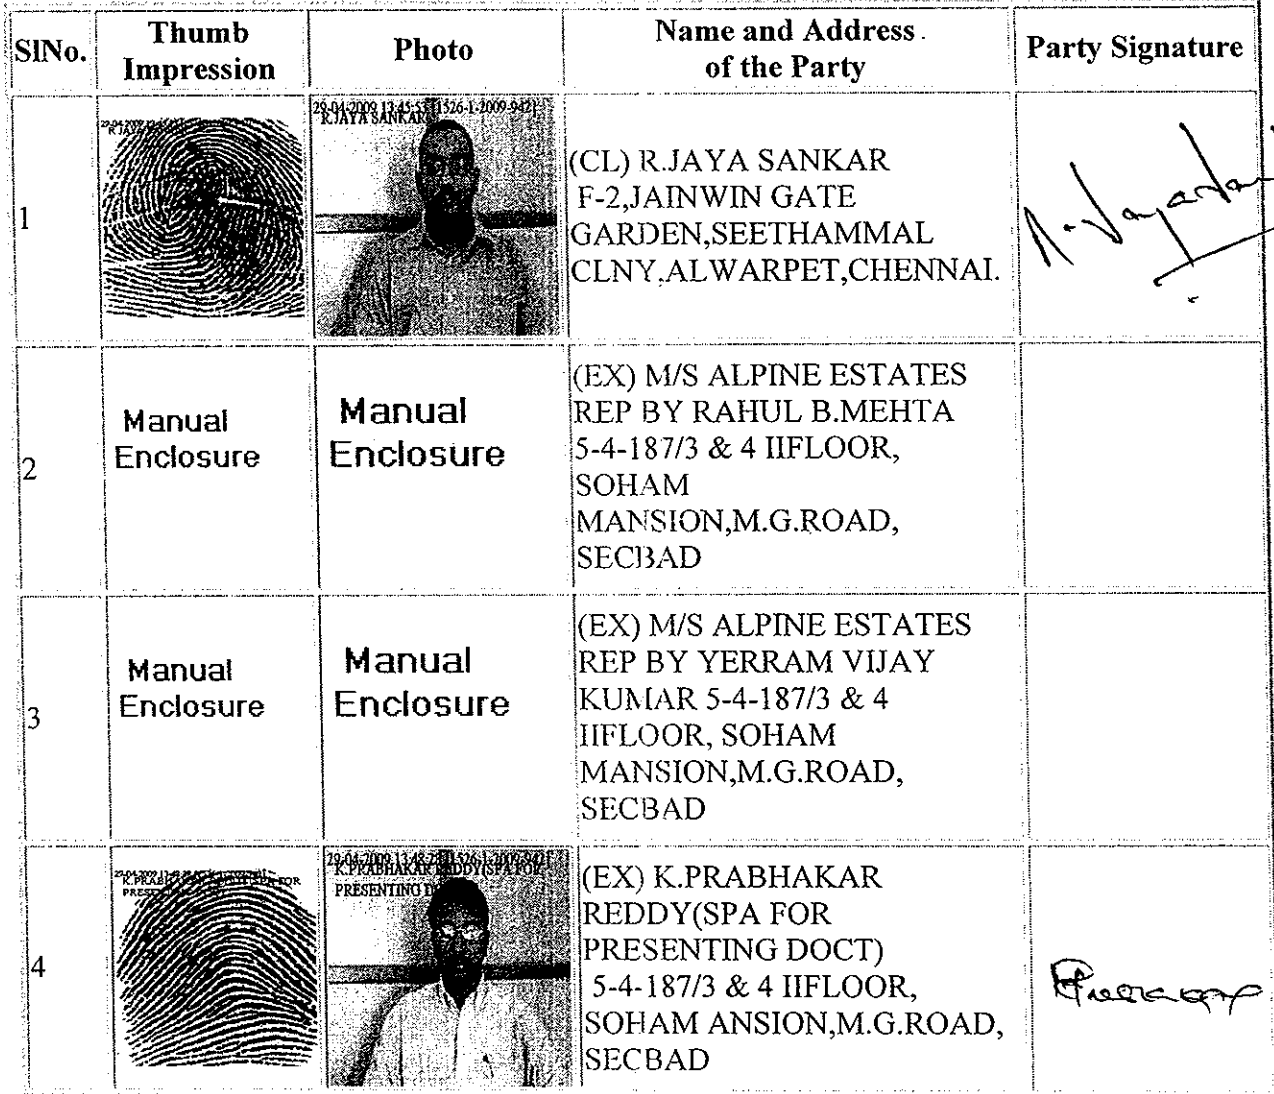 SlNo.
Thumb
Impression
Photo
Name and Address
of the Party
Party Signature
1
29-04-2009 13:45:53 [1526-1-2009-942]
R.JAYA SANKAR
(CL) R.JAYA SANKAR
F-2,JAINWIN GATE
GARDEN,SEETHAMMAL
CLNY,ALWARPET,CHENNAI.
2
Manual
Enclosure
Manual
Enclosure
(EX) M/S ALPINE ESTATES
REP BY RAHUL B.MEHTA
5-4-187/3 & 4 IIFLOOR,
SOHAM
MANSION,M.G.ROAD,
SECBAD
3
Manual
Enclosure
Manual
Enclosure
(EX) M/S ALPINE ESTATES
REP BY YERRAM VIJAY
KUMAR 5-4-187/3 & 4
IIFLOOR, SOHAM
MANSION,M.G.ROAD,
SECBAD
4
K.PRABHAKAR REDDY(SPA FOR
PRESENTING
(EX) K.PRABHAKAR
REDDY(SPA FOR
PRESENTING DOCT)
5-4-187/3 & 4 IIFLOOR,
SOHAM ANSION,M.G.ROAD,
SECBAD